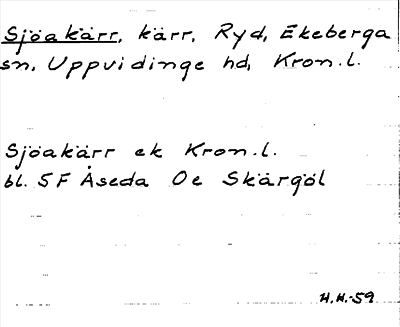 Sjöakärr, kärr, Ryd, Ekeberga
sn, Uppvidinge hd, Kron.l.
Sjöakärr ek Kron.l.
bl. 5F Åseda Oe Skärgöl
H.H.-59